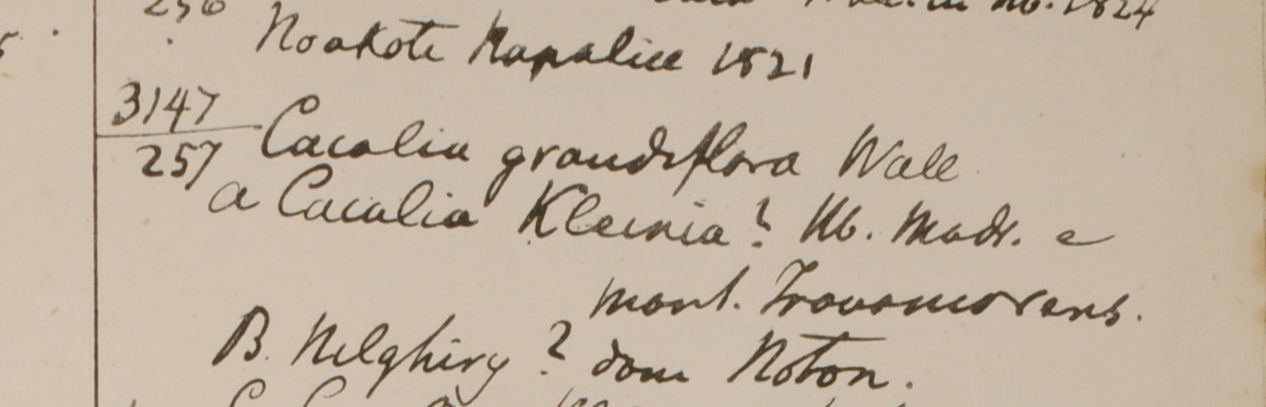 256 1824
Noakote Napaliae 1821
3147
257 Cacalia grandiflora Wall
a Cacalia Kleinia? Hb. Madr. e
mont.
B. Nelghiry? dom Noton.